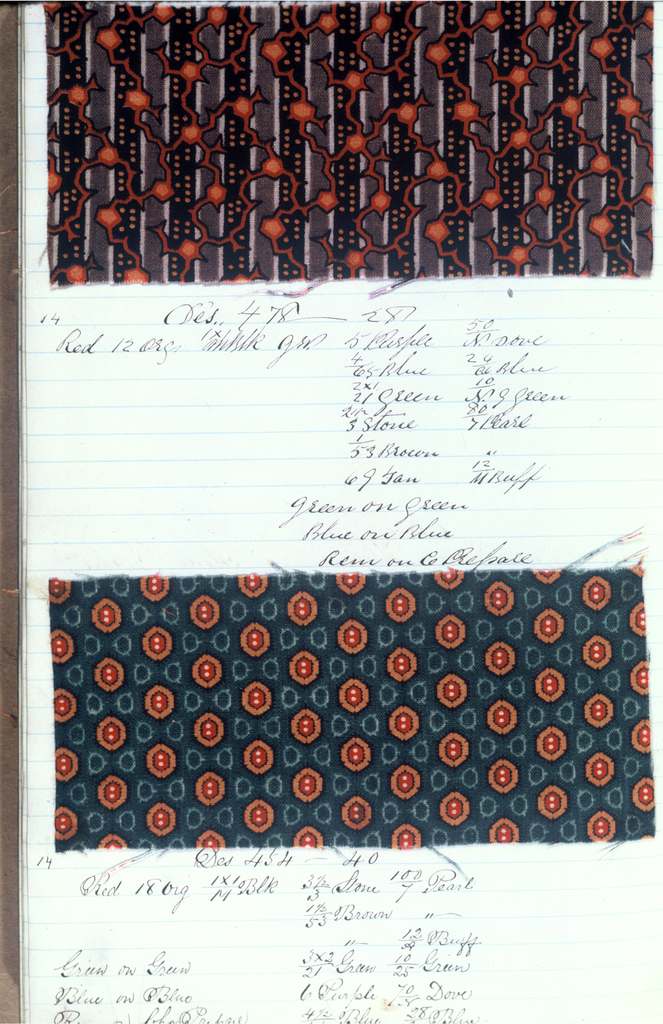 14 Des. 478 — 28
Red 12 Org 1x1 Blk 5 Purple 50 Dove
4/65 Blue 24 Blue
2x1/21 Green 10 Green
2 1/2/3 Stone 80/7 Pearl
1/53 Brown "
69 Tan 12/M Buff
Green on Green
Blue on Blue
Rem on Co Prepare
14 Des 454 — 40
Red 18 Org 1x1/M Blk 3 1/2/3 Stone 100/7 Pearl
1 1/2/53 Brown "
" 12 Buff
Green on Green 3x2/21 Green 10/25 Green
Blue on Blue 6 Purple 70 Dove
4 1/2 Blue 28 Blue